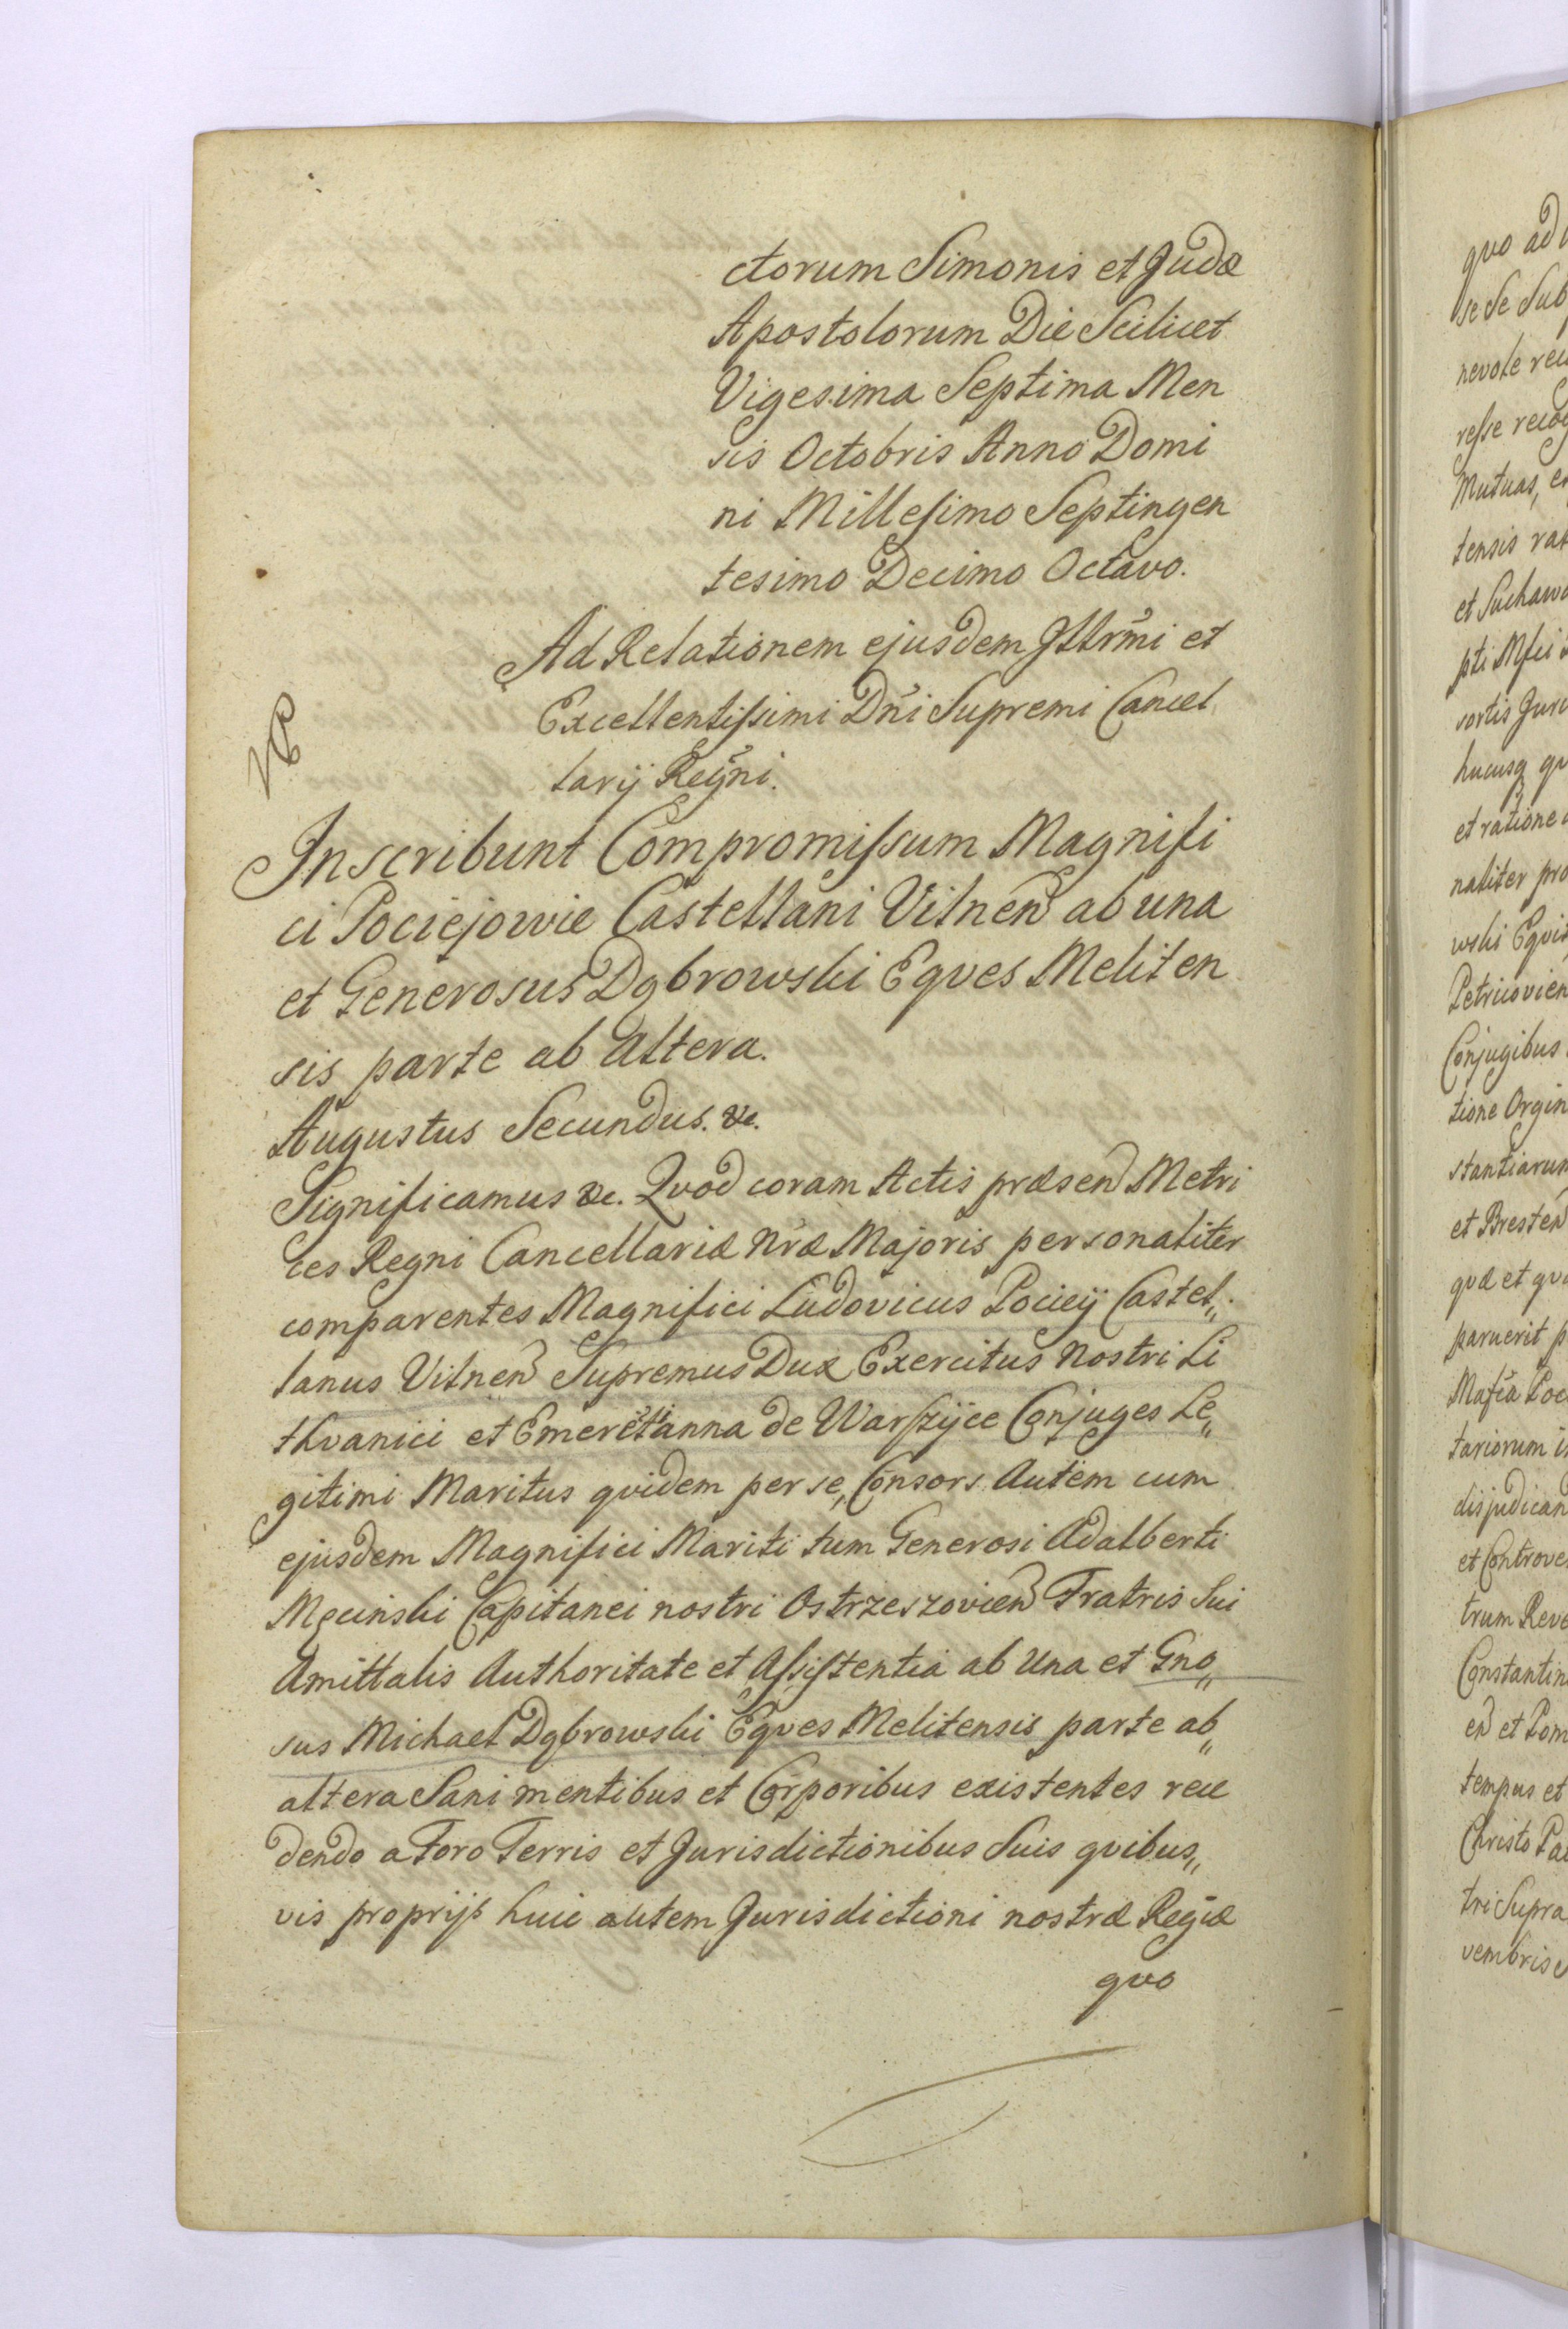 ctorum Simonis et Judæ
Apostolorum Die Scilicet
Vigesima Septima Men
sis Octobris Anno Domi
ni Millesimo Septingen
tesimo Decimo Octavo.
Ad Relationem ejusdem Illrm̃i et
Excellentissimi Dñi Supremi Cancel
larij Regni.
Inscribunt Compromissum Magnifi
ci Pociejowie Castellani Vilnen ab una
et Generosus Dąbrowski Eqves Meliten
sis parte ab altera.
Augustus Secundus. &c.
Significamus &c. Qvod coram Actis præsen Metri
ces Regni Cancellariæ Nræ Majoris personaliter
comparentes Magnifici Ludovicus Pociey Castel„
lanus Vilnen Supremus Dux Exercitus Nostri Li
thvanici et Emeretianna de Warszyce Conjuges Le„
gitimi Maritus qvidem per se, Consors Autem cum
ejusdem Magnifici Mariti tum Generosi Adalberti
Męcinski Capitanei nostri Ostrzeszovien Fratris Sui
Amittalis Authoritate et Assistentia ab Una et Gno„
sus Michael Dąbrowski Eqves Melitensis parte ab„
altera Sani mentibus et Corporibus existentes rece
dendo a Foro Terris et Jurisdictionibus Suis qvibus„
vis proprijs huic autem Jurisdictioni nostræ Regiæ
qvo
qvo ad
se se Sub
nevole
resse
Mutuas,
tensis
et Suchaw
pti Mfci
sortis Juri
hucusq
et ratione
naliter pro
wski Eqvi
Petricovien
Conjugibus
tione Orgin
stantiarum
et Bresten
qvæ et
paruerit
Poc
tariorum
disjudican
et Controve
trum Reve
Constantin
en et Pom
tempus et
Christo Pa
tri Supra
vembris